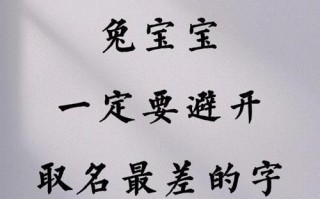 兔宝宝
一定要避开
取名最差的字